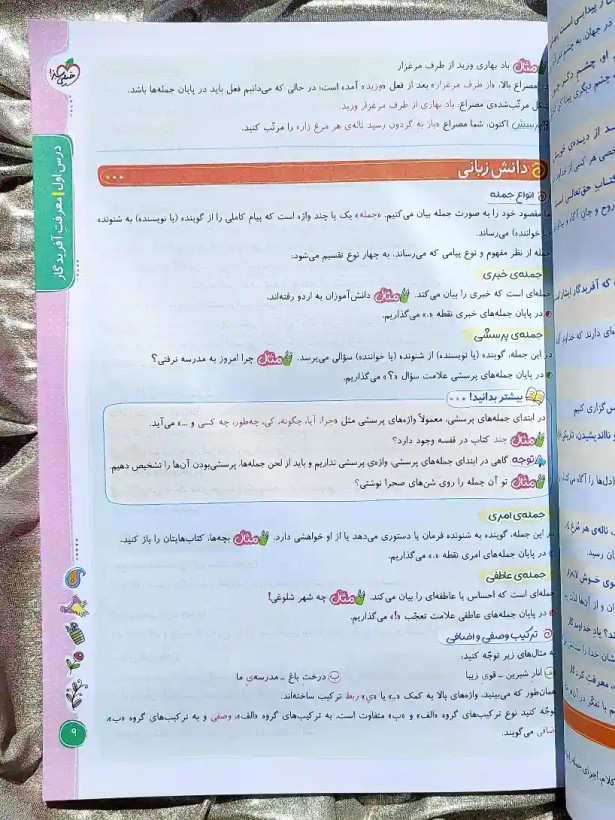 مثال باد بهاری وزید از طرف مرغزار
در مصراع بالا، «از طرف مرغزار» بعد از فعل «وزید» آمده است؛ در حالی که می‌دانیم فعل باید در پایان جمله‌ها باشد.
شکل مرتّب‌شده‌ی مصراع: باد بهاری از طرف مرغزار وزید.
پرسش اکنون، شما مصراع «باز به گردون رسید ناله‌ی هر مرغ زار» را مرتّب کنید.
دانش زبانی
انواع جمله
ما مقصود خود را به صورت جمله بیان می‌کنیم. «جمله» یک یا چند واژه است که پیام کاملی را از گوینده (یا نویسنده) به شنونده
(یا خواننده) می‌رساند.
جمله از نظر مفهوم و نوع پیامی که می‌رساند، به چهار نوع تقسیم می‌شود:
جمله‌ی خبری
جمله‌ای است که خبری را بیان می‌کند. مثال دانش‌آموزان به اردو رفته‌اند.
در پایان جمله‌های خبری نقطه «.» می‌گذاریم.
جمله‌ی پرسشی
در این جمله، گوینده (یا نویسنده) از شنونده (یا خواننده) سؤالی می‌پرسد. مثال چرا امروز به مدرسه نرفتی؟
در پایان جمله‌های پرسشی علامت سؤال «؟» می‌گذاریم.
بیشتر بدانید!
در ابتدای جمله‌های پرسشی، معمولاً واژه‌های پرسشی مثل «چرا، آیا، چگونه، کی، چه‌طور، چه کسی و ...» می‌آید.
مثال چند کتاب در قفسه وجود دارد؟
توجه گاهی در ابتدای جمله‌های پرسشی، واژه‌ی پرسشی نداریم و باید از لحن جمله‌ها، پرسشی‌بودن آن‌ها را تشخیص دهیم.
مثال تو آن جمله را روی شن‌های صحرا نوشتی؟
جمله‌ی امری
در این جمله، گوینده به شنونده فرمان یا دستوری می‌دهد یا از او خواهشی دارد. مثال بچه‌ها، کتاب‌هایتان را باز کنید.
در پایان جمله‌های امری نقطه «.» می‌گذاریم.
جمله‌ی عاطفی
جمله‌ای است که احساس یا عاطفه‌ای را بیان می‌کند. مثال چه شهر شلوغی!
در پایان جمله‌های عاطفی علامت تعجّب «!» می‌گذاریم.
ترکیب وصفی و اضافی
به مثال‌های زیر توجّه کنید:
الف انار شیرین ـ قویِ زیبا ب درخت باغ ـ مدرسه‌یِ ما
همان‌طور که می‌بینید، واژه‌های بالا به کمک «ـِ» یا «یِ» ربط ترکیب ساخته‌اند.
توجّه کنید نوع ترکیب‌های گروه «الف» و «ب» متفاوت است. به ترکیب‌های گروه «الف»، وصفی و به ترکیب‌های گروه «ب»،
اضافی می‌گویند.
درس اول | معرفت آفریدگار
خیلی سبز
۹